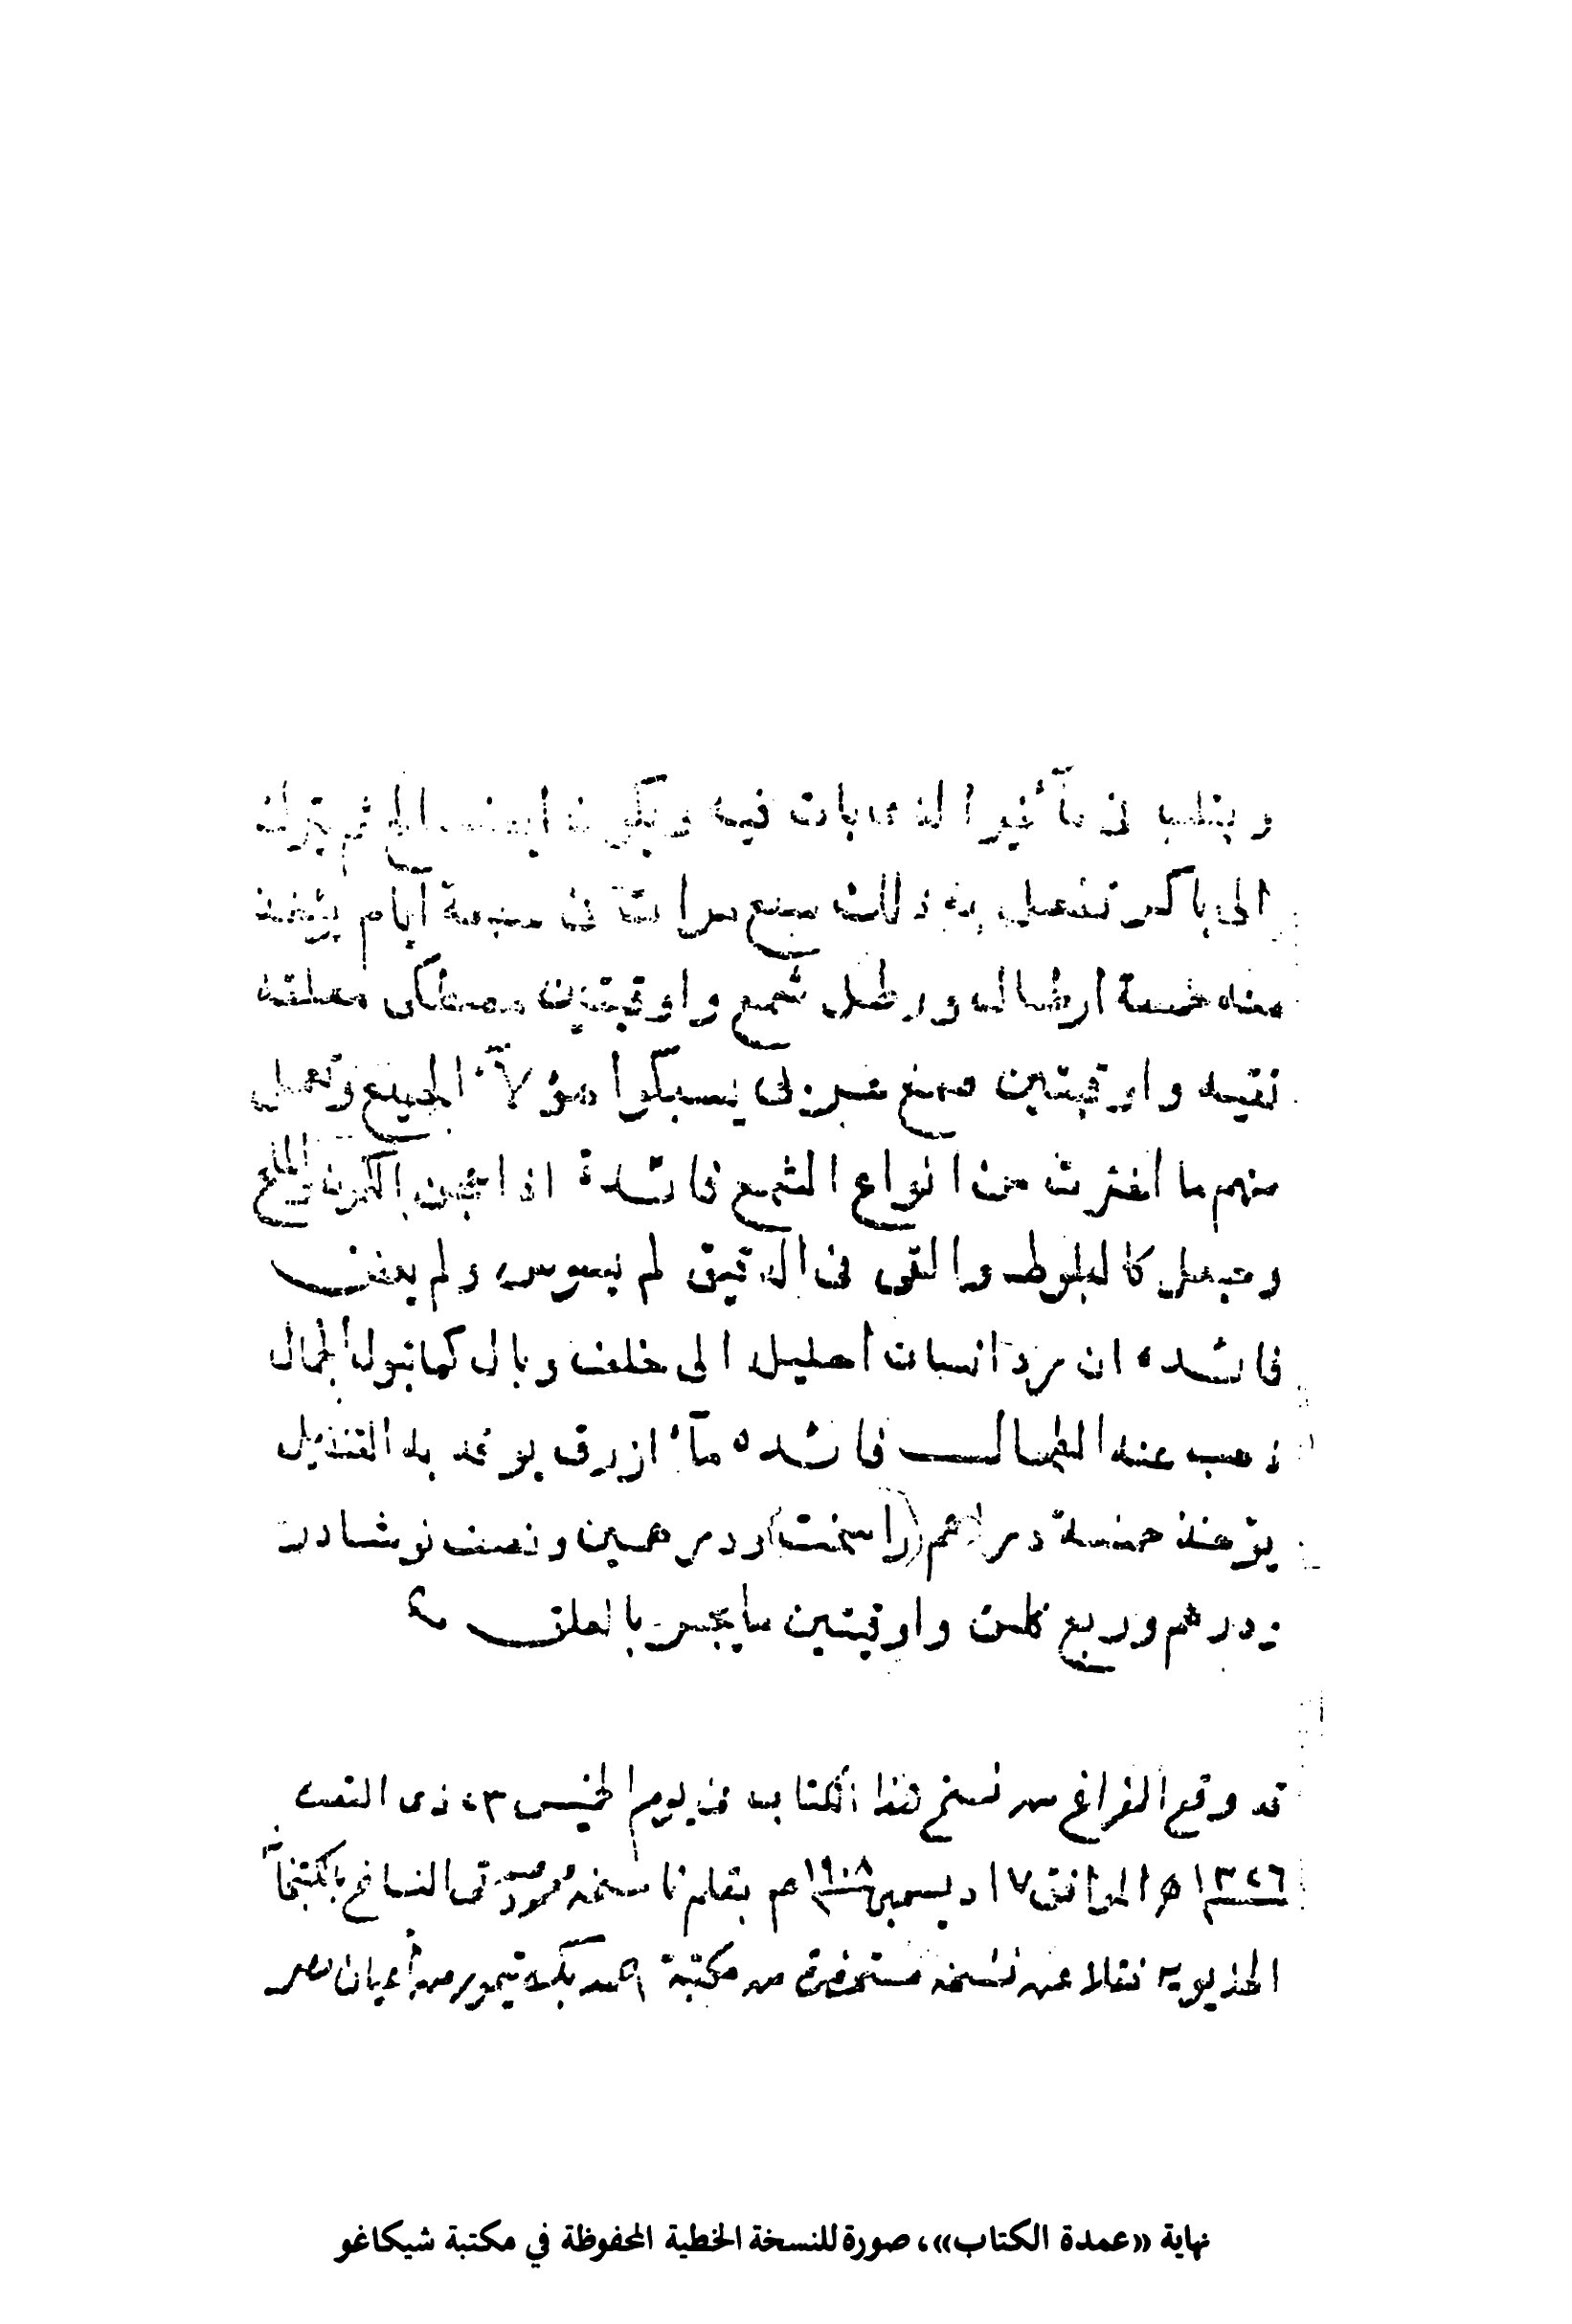 ويقلب فى مآ غير الذى بات فيه ويكون ايضا مالح ثم يترك
الى باكر تفعل به ذلك سبع مرات فى سبعة أيام يؤخذ
منه خمسة أرطال ورطل شمع واوقيتين مصطكى معلقه
نقيه واوقيتين صمغ عربى يسبكوا هؤلآء الجميع وتعمل
منهم ما اخترت من انواع الشمع فائدة اذا عجن الكمون والملح
وجعل كالبلوطه والقى فى الدقيق لم يسوس ولم يعفن
فائده ان مرد انسان أحليل الى خلف وبال كما تبول الجمال
ذهب عنه الطحال فائده مآء ازرق يوقد به القنديل
يؤخذ خمسة دراهم (راسخت) ودرهمين ونصف نوشادر
ودرهم وربع كلس واوقيتين مايجبر بالعلق
قد وقع الفراغ من نسخ هذا الكتاب فى يوم الخميس ٢٣ ذى القعدة
١٣٢٦ هـ الموافق ١٧ ديسمبر ١٩٠٨ م بقلم ناسخه محمود صدقى النساخ بالكتبخانة
الخديويه نقلا عن نسخه مستحضرة من مكتبة احمد بك تيمور من أعيان مصر
نهاية «عمدة الكتاب»، صورة للنسخة الخطية المحفوظة في مكتبة شيكاغو